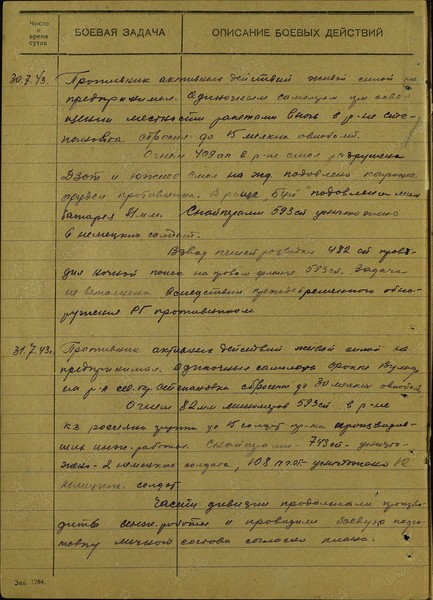 Число и время суток
БОЕВАЯ ЗАДАЧА
ОПИСАНИЕ БОЕВЫХ ДЕЙСТВИЙ
30.7.43. Противник активных действий живой силой не
предпринимал. Одиночным самолетом при осве-
щении местности ракетами вновь в р-не
сбросил до 15 мелких авиабомб.
Огнем 409 ап в р-не разрушено
Дзот и южнее подавлено
орудие противника. В роще "Бук" подавлена мин
батарея 81 м.м. Снайперами 593 сп уничтожено
6 немецких солдат.
Взвод пешей разведки 482 сп прово-
дил ночной поиск на правом фланге 593 сп. Задача
не выполнена вследствии преждевременного обна-
ружения РГ противником.
31.7.43г. Противник активных действий живой силой не
предпринимал. Одиночные самолеты
на р-н сев. сбросили до 30 мелких авиабомб.
Огнем 82 мм минометов 593 сп в р-не
КЗ рассеяна группа до 15 солдат пр-ка производив-
ших инж. работы. Снайперами - 743 сп - уничто-
жено - 2 немецких солдата, 108 уничтожено 10
немецких солдат.
Части дивизии продолжали произво-
дить инж. работы и проводили боевую подго-
товку личного состава согласно плана.
Зак. 1264.